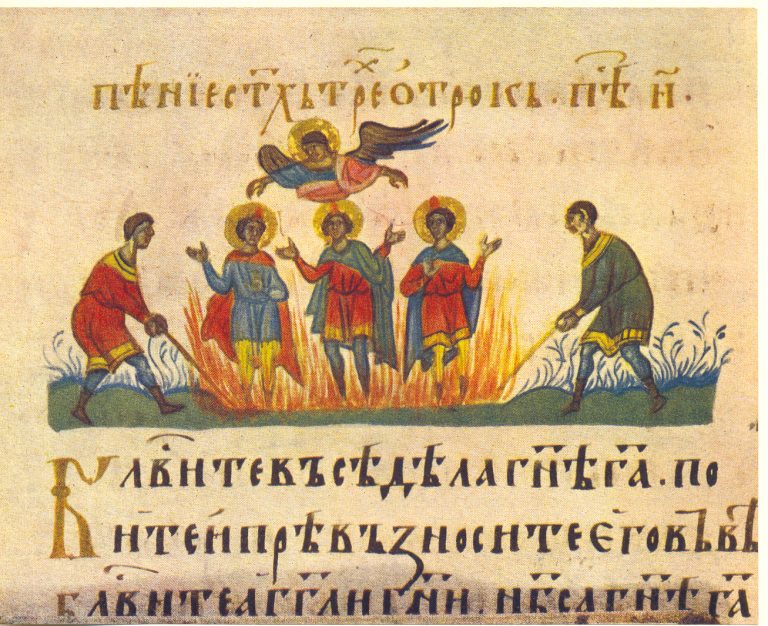 пѣниестⷯхътрⷯеотрокъ·пѣ н҃·
Блв҃итевъсѣдѣлагн҃ѣга҃·по
итеипрѣвъзноситеѥговъвѣ
блв҃итеагг҃лигн҃и·нб҃сагн҃ѣга҃